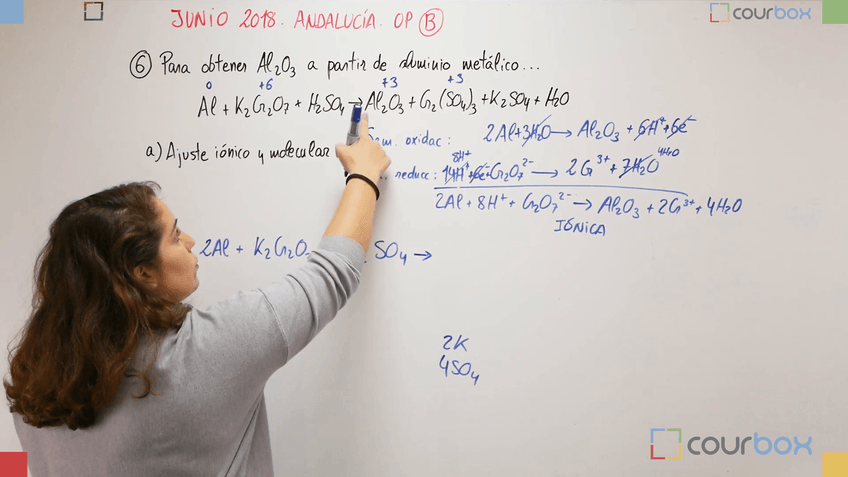 JUNIO 2018. ANDALUCÍA. OP B
courbox
6 Para obtener Al2O3 a partir de aluminio metálico...
0 +6 +3 +3
Al + K2Cr2O7 + H2SO4 → Al2O3 + Cr2(SO4)3 + K2SO4 + H2O
a) Ajuste iónico y molecular
Sem. oxidac: 2Al + 3H2O → Al2O3 + 6H+ + 6e-
8H+ 4H2O
reducc: 14H+ + 6e- + Cr2O7 2- → 2Cr3+ + 7H2O
2Al + 8H+ + Cr2O7 2- → Al2O3 + 2Cr3+ + 4H2O
IÓNICA
2Al + K2Cr2O SO4 →
2K
4SO4
courbox